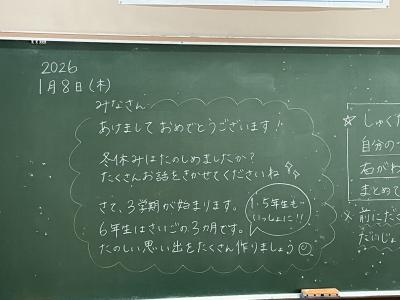 2026
1月8日(木)
みなさん
あけまして おめでとうございます!
冬休みはたのしめましたか?
たくさんお話をきかせてくださいね
さて、3学期が始まります。
1・5年生も
いっしょに!!
6年生はさいごの3カ月です。
たのしい思い出をたくさん作りましょう
☆しゅくだ
自分の
右がわ
まとめて
×前にだ
だいじょ